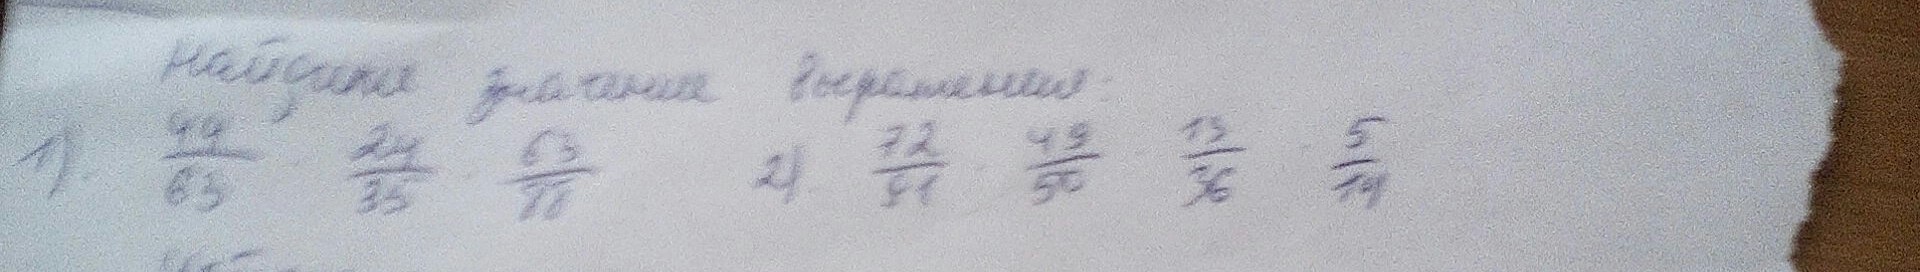 Найдите значение выражения:
1). 44/65 · 24/35 · 63/88 2). 72/91 · 49/50 · 13/36 · 5/14